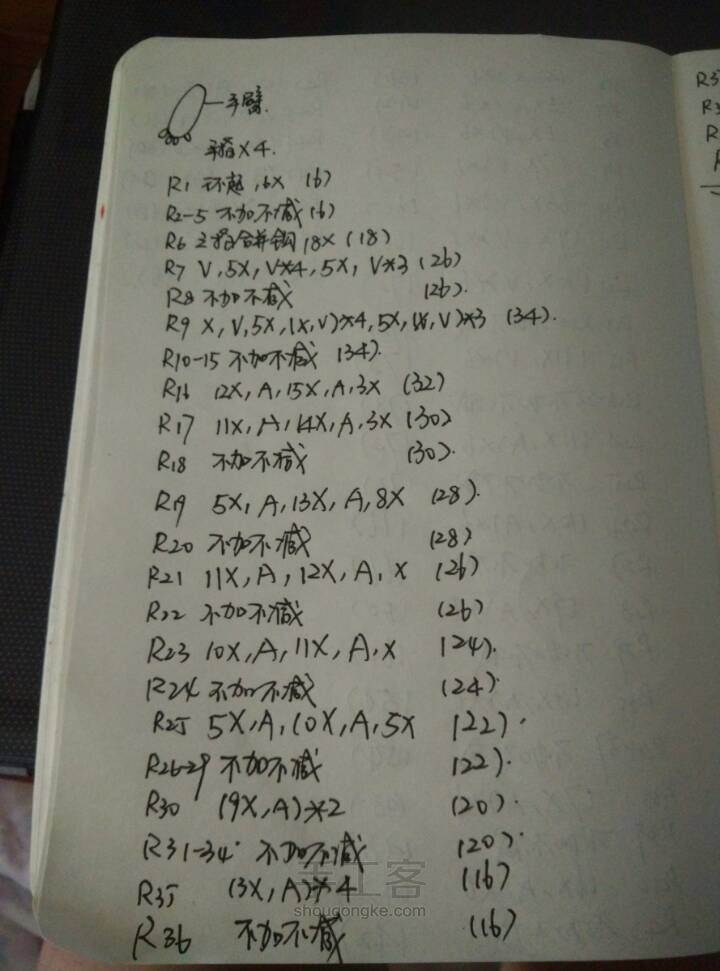 手臂.
手指×4.
R1 环起,6X (6)
R2-5 不加不减 (6)
R6 三指合并钩 18X (18)
R7 V,5X,V*4,5X,V*3 (26)
R8 不加不减 (26).
R9 X,V,5X,(X,V)*4,5X,(X,V)*3 (34).
R10-15 不加不减 (34).
R16 12X,A,15X,A,3X (32)
R17 11X,A,14X,A,3X (30)
R18 不加不减 (30).
R19 5X,A,13X,A,8X (28).
R20 不加不减 (28)
R21 11X,A,12X,A,X (26)
R22 不加不减 (26)
R23 10X,A,11X,A,X (24).
R24 不加不减 (24).
R25 5X,A,10X,A,5X (22).
R26-29 不加不减 (22).
R30 (9X,A)*2 (20).
R31-34 不加不减 (20).
R35 (3X,A)*4 (16)
R36 不加不减 (16)
手工客
shougongke.com
R37
R3
R